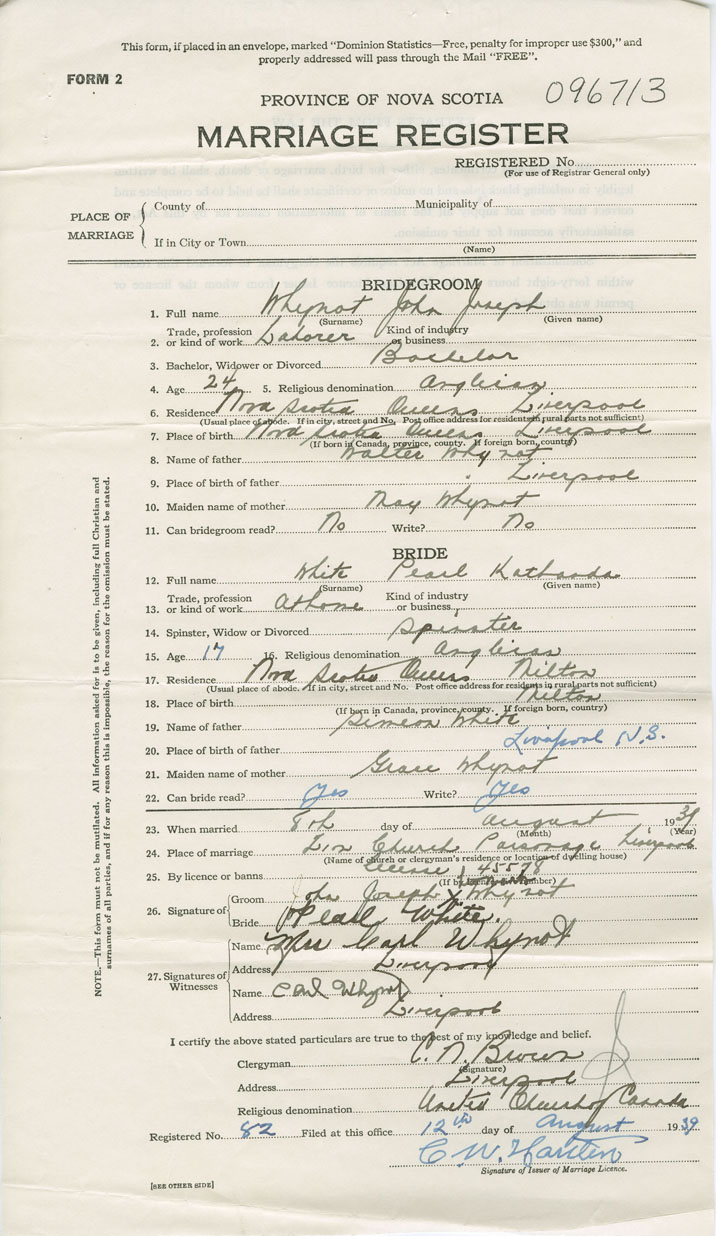 This form, if placed in an envelope, marked "Dominion Statistics—Free, penalty for improper use $300," and
properly addressed will pass through the Mail "FREE".
FORM 2
PROVINCE OF NOVA SCOTIA
096713
MARRIAGE REGISTER
REGISTERED No.
(For use of Registrar General only)
PLACE OF MARRIAGE
County of Municipality of
If in City or Town
(Name)
BRIDEGROOM
1. Full name Whynot John Joseph
(Surname) (Given name)
2. Trade, profession or kind of work Laborer Kind of industry or business
3. Bachelor, Widower or Divorced Bachelor
4. Age 24 5. Religious denomination Anglican
6. Residence Nova Scotia Queens Liverpool
(Usual place of abode. If in city, street and No. Post office address for residents in rural parts not sufficient)
7. Place of birth Nova Scotia Queens Liverpool
(If born in Canada, province, county. If foreign born, country)
8. Name of father Walter Whynot
9. Place of birth of father Liverpool
10. Maiden name of mother May Whynot
11. Can bridegroom read? No Write? No
BRIDE
12. Full name White Pearl
(Surname) (Given name)
13. Trade, profession or kind of work At home Kind of industry or business
14. Spinster, Widow or Divorced Spinster
15. Age 17 16. Religious denomination Anglican
17. Residence Nova Scotia Queens Milton
(Usual place of abode. If in city, street and No. Post office address for residents in rural parts not sufficient)
18. Place of birth Milton
(If born in Canada, province, county. If foreign born, country)
19. Name of father Simeon White
20. Place of birth of father Liverpool N.S.
21. Maiden name of mother Grace Whynot
22. Can bride read? Yes Write? Yes
23. When married 8th day of August 1939
(Month) (Year)
24. Place of marriage Zion Church Parsonage Liverpool
(Name of church or clergyman's residence or location of dwelling house)
25. By licence or banns license 45578
(If by licence, number)
26. Signature of
Groom John Joseph X Whynot
Bride Pearl White.
27. Signatures of Witnesses
Name Mrs Carl Whynot
Address Liverpool
Name Carl Whynot
Address Liverpool
I certify the above stated particulars are true to the best of my knowledge and belief.
Clergyman C. N. Brown
(Signature)
Address Liverpool
Religious denomination United Church of Canada
Registered No. 82 Filed at this office 12th day of August 1939
Signature of Issuer of Marriage Licence.
[SEE OTHER SIDE]
NOTE.—This form must not be mutilated. All information asked for is to be given, including full Christian and
surnames of all parties, and if for any reason this is impossible, the reason for the omission must be stated.